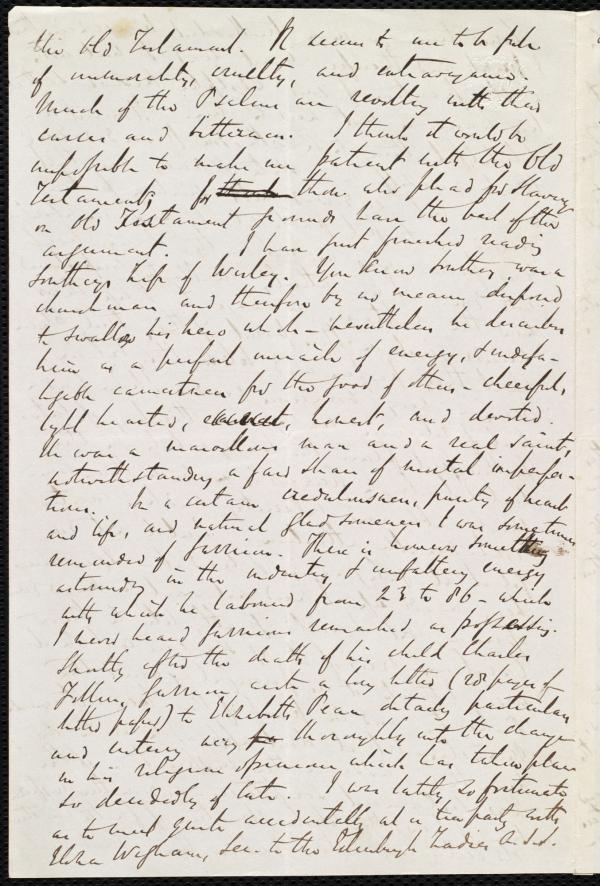 the Old Testament. It seems to me to be full
of immorality, cruelty, and extravagance.
Much of the Psalms are revolting with their
curses and bitterness. I think it would be
impossible to make me patient with the Old
Testament, for those who plead for Slavery
on Old Testament grounds have the best of the
argument. I have just finished reading
Southeys Life of Wesley. You know Southey was a
churchman and therefore by no means disposed
to swallow his hero whole - nevertheless he describes
him as a perfect miracle of energy, & indefa-
tigable earnestness for the good of others - cheerful,
light hearted, honest, and devoted.
He was a marvellous man and a real saint,
notwithstanding a fair share of mental imperfec-
tions. In a certain credulousness, purity of heart
and life, and natural gladsomeness I was sometimes
reminded of Garrison. There is however something
astounding in the industry & unfaltering energy
with which he laboured from 23 to 86 - which
I never heard Garrison remarked as possessing.
Shortly after the death of his child Charles
Follen, Garrison wrote a long letter (28 pages of
letter paper) to Elizabeth Pease detailing particulars
and entering very thoroughly into the change
in his religious opinions which has taken place
so decidedly of late. I was lately so fortunate
as to meet quite accidentally at a tea party with
Eliza Wigham, Sec. to the Edinburgh Ladies A.S.S.